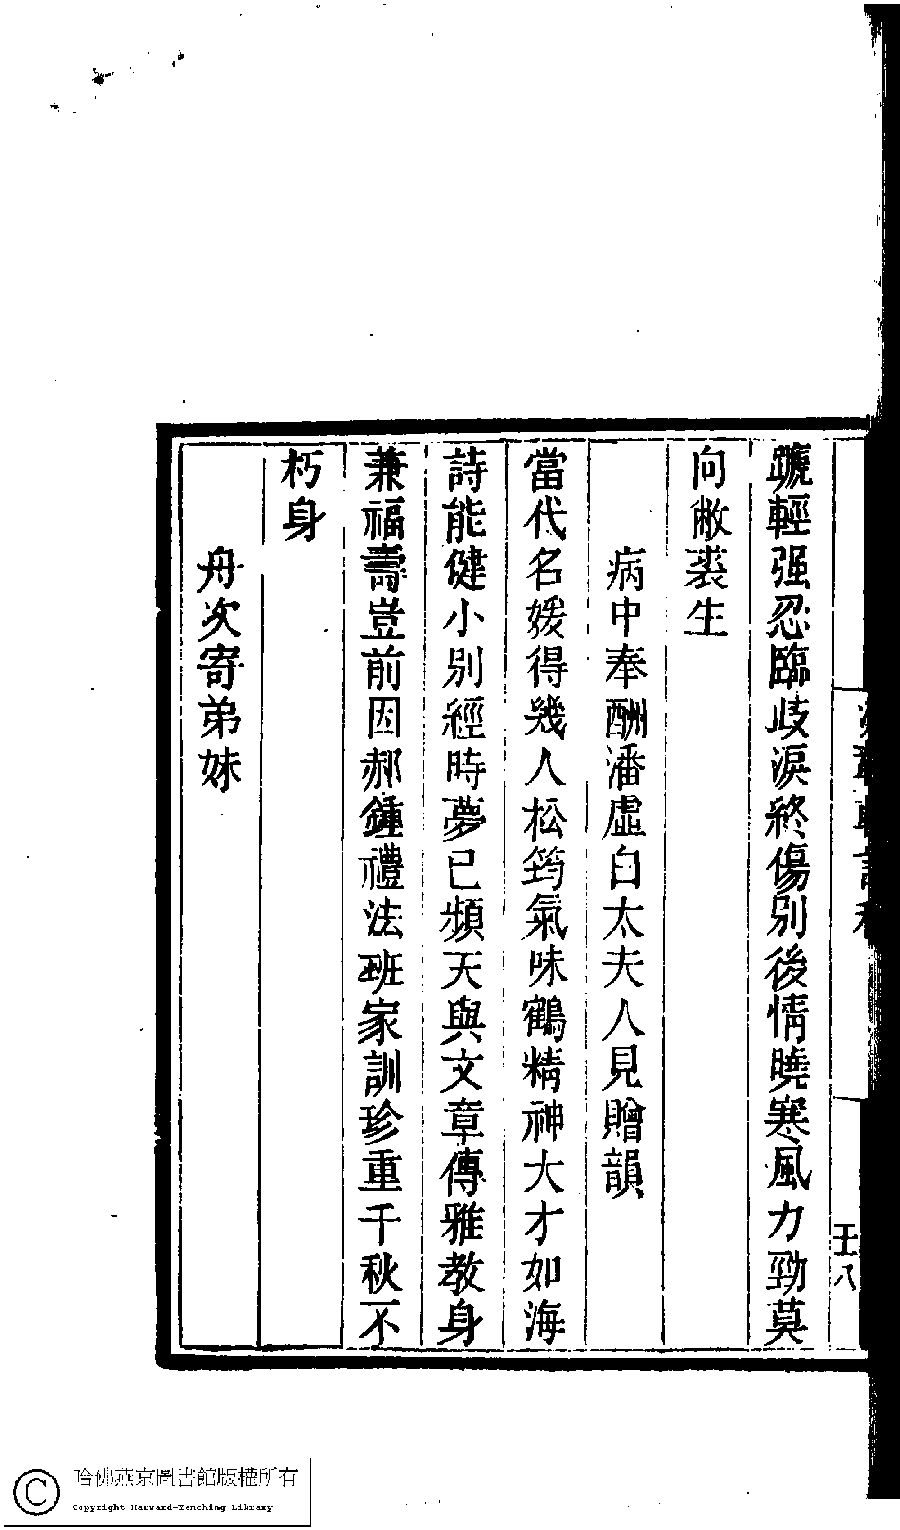 蹏輕强忍臨歧淚終傷別後情曉寒風力勁莫
向敝裘生
病中奉酬潘虛白太夫人見贈韻
當代名媛得幾人松筠氣味鶴精神大才如海
詩能健小別經時夢已頻天與文章傳雅教身
兼福壽豈前因郝鍾禮法班家訓珍重千秋不
朽身
舟次寄弟妹
壬八
哈佛燕京圖書館版權所有
Copyright Harvard-Yenching Library